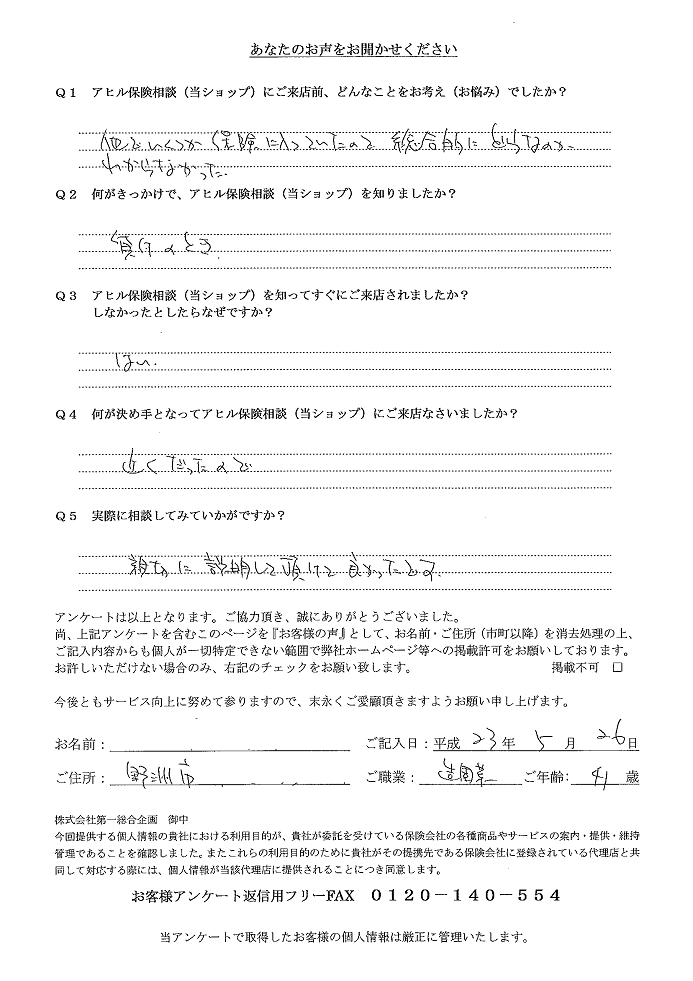 あなたのお声をお聞かせください
Q1 アヒル保険相談（当ショップ）にご来店前、どんなことをお考え（お悩み）でしたか？
他でいくつか保険に入っていたので 総合的にどうなのか
わからなかった.
Q2 何がきっかけで、アヒル保険相談（当ショップ）を知りましたか？
買物のとき.
Q3 アヒル保険相談（当ショップ）を知ってすぐにご来店されましたか？
しなかったとしたらなぜですか？
はい.
Q4 何が決め手となってアヒル保険相談（当ショップ）にご来店なさいましたか？
近くだったので
Q5 実際に相談してみていかがですか？
親切に説明して頂けて良かったです.
アンケートは以上となります。ご協力頂き、誠にありがとうございました。
尚、上記アンケートを含むこのページを『お客様の声』として、お名前・ご住所（市町以降）を消去処理の上、
ご記入内容からも個人が一切特定できない範囲で弊社ホームページ等への掲載許可をお願いしております。
お許しいただけない場合のみ、右記のチェックをお願い致します。 掲載不可 □
今後ともサービス向上に努めて参りますので、末永くご愛顧頂きますようお願い申し上げます。
お名前： ご記入日：平成 23 年 5 月 26 日
ご住所： 野洲市 ご職業： 造園業 ご年齢： 41 歳
株式会社第一総合企画 御中
今回提供する個人情報の貴社における利用目的が、貴社が委託を受けている保険会社の各種商品やサービスの案内・提供・維持
管理であることを確認しました。またこれらの利用目的のために貴社がその提携先である保険会社に登録されている代理店と共
同して対応する際には、個人情報が当該代理店に提供されることにつき同意します。
お客様アンケート返信用フリーFAX 0120－140－554
当アンケートで取得したお客様の個人情報は厳正に管理いたします。